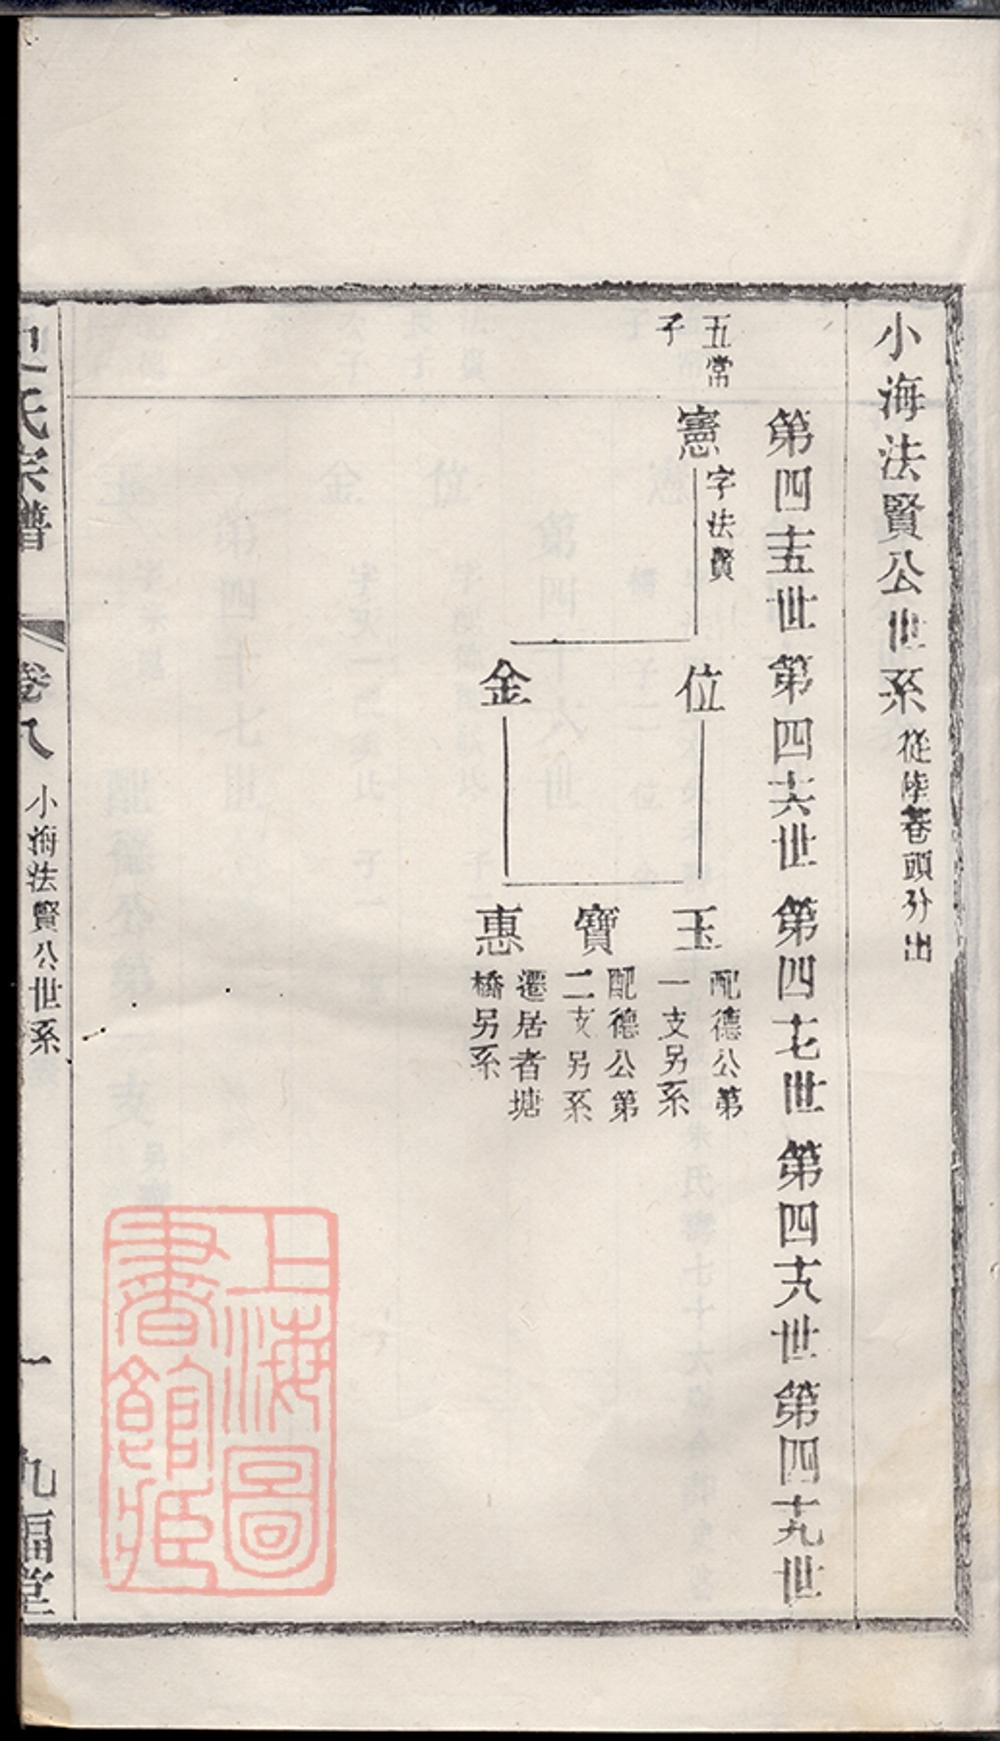 小海法賢公世系 從陸卷頭分出
第四十五世 第四十六世 第四十七世 第四十八世 第四十九世
五常
子
憲 字法賢
位
金
玉 配德公第
一支另系
寶 配德公第
二支另系
惠 遷居者塘
橋另系
氏宗譜
卷八 小海法賢公世系 一 九福堂
上海圖
書館藏